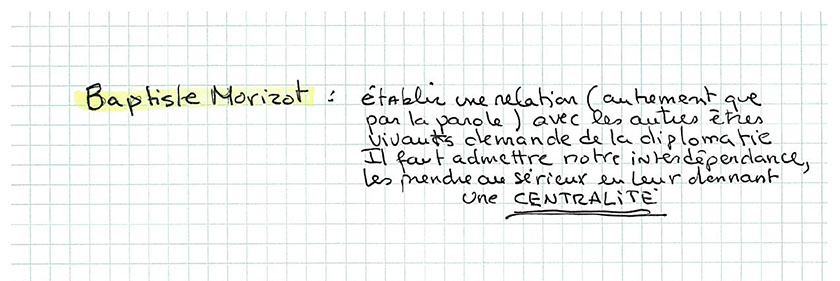 Baptiste Morizot : établir une relation (autrement que
par la parole) avec les autres êtres
vivants demande de la diplomatie
Il faut admettre notre interdépendance,
les prendre au sérieux en leur donnant
une CENTRALITÉ